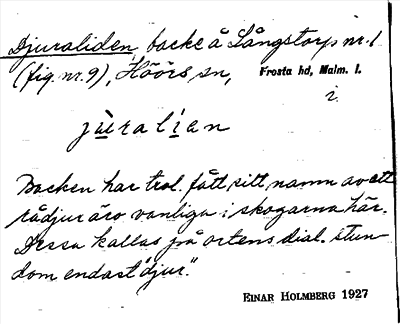 Djuraliden, backe å Långstorp nr. 1
(fig. nr. 9), Höörs sn, Frosta hd, Malm. l.
i.
jùralían
Backen har trol. fått sitt namn av att
rådjur äro vanliga i skogarna här.
Dessa kallas på ortens dial. stun
dom endast "djur".
EINAR HOLMBERG 1927